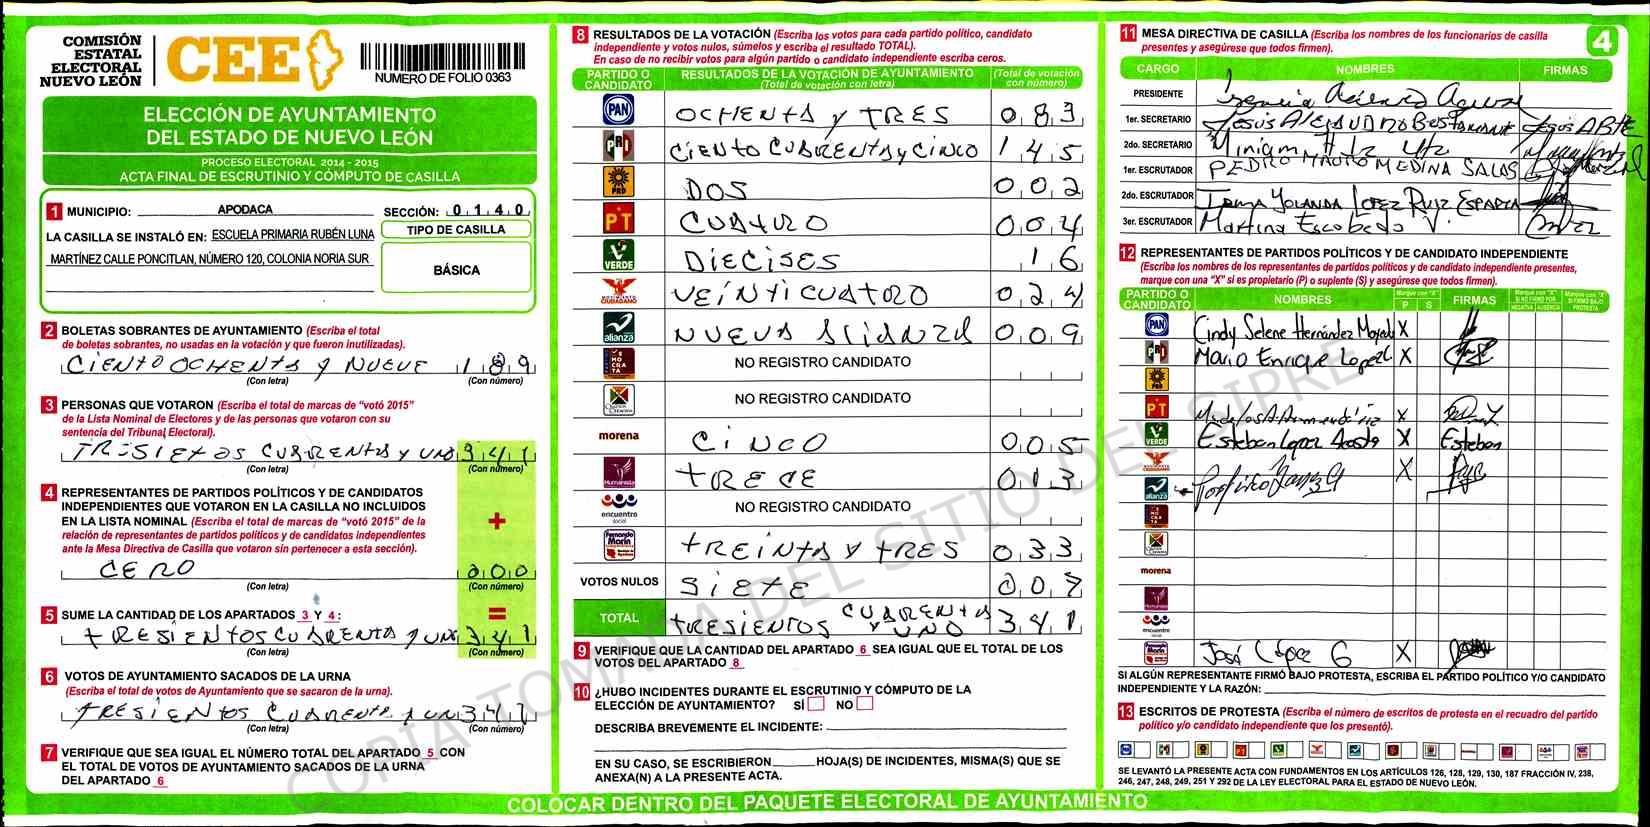 COMISIÓN
ESTATAL
ELECTORAL
NUEVO LEÓN
CEE
NUMERO DE FOLIO 0363
ELECCIÓN DE AYUNTAMIENTO
DEL ESTADO DE NUEVO LEÓN
PROCESO ELECTORAL 2014 - 2015
ACTA FINAL DE ESCRUTINIO Y CÓMPUTO DE CASILLA
1 MUNICIPIO: APODACA SECCIÓN: 0140
LA CASILLA SE INSTALÓ EN: ESCUELA PRIMARIA RUBÉN LUNA
MARTÍNEZ CALLE PONCITLAN, NÚMERO 120, COLONIA NORIA SUR
TIPO DE CASILLA
BÁSICA
2 BOLETAS SOBRANTES DE AYUNTAMIENTO (Escriba el total
de boletas sobrantes, no usadas en la votación y que fueron inutilizadas).
CIENTO OCHENTA Y NUEVE 189
(Con letra) (Con número)
3 PERSONAS QUE VOTARON (Escriba el total de marcas de “votó 2015”
de la Lista Nominal de Electores y de las personas que votaron con su
sentencia del Tribunal Electoral).
TRESIETOS CUARENTA Y UNO 341
(Con letra) (Con número)
4 REPRESENTANTES DE PARTIDOS POLÍTICOS Y DE CANDIDATOS
INDEPENDIENTES QUE VOTARON EN LA CASILLA NO INCLUIDOS
EN LA LISTA NOMINAL (Escriba el total de marcas de “votó 2015” de la
relación de representantes de partidos políticos y de candidatos independientes
ante la Mesa Directiva de Casilla que votaron sin pertenecer a esta sección).
+
CERO 000
(Con letra) (Con número)
5 SUME LA CANTIDAD DE LOS APARTADOS 3 Y 4: =
TRESIENTOS CUARENTA Y UNO 341
(Con letra) (Con número)
6 VOTOS DE AYUNTAMIENTO SACADOS DE LA URNA
(Escriba el total de votos de Ayuntamiento que se sacaron de la urna).
TRESIENTOS CUARENTA Y UN 341
(Con letra) (Con número)
7 VERIFIQUE QUE SEA IGUAL EL NÚMERO TOTAL DEL APARTADO 5 CON
EL TOTAL DE VOTOS DE AYUNTAMIENTO SACADOS DE LA URNA
DEL APARTADO 6
8 RESULTADOS DE LA VOTACIÓN (Escriba los votos para cada partido político, candidato
independiente y votos nulos, súmelos y escriba el resultado TOTAL).
En caso de no recibir votos para algún partido o candidato independiente escriba ceros.
PARTIDO O CANDIDATO RESULTADOS DE LA VOTACIÓN DE AYUNTAMIENTO (Total de votación con letra) (Total de votación con número)
PAN OCHENTA Y TRES 083
PRI CIENTO CUARENTA Y CINCO 145
PRD DOS 002
PT CUATRO 004
VERDE DIECISES 16
MOVIMIENTO CIUDADANO VEINTICUATRO 024
alianza NUEVA ALIANZA 009
DEMOCRATA NO REGISTRO CANDIDATO
NO REGISTRO CANDIDATO
morena CINCO 005
Humanista TRECE 013
encuentro social NO REGISTRO CANDIDATO
Fernando Marín TREINTA Y TRES 033
VOTOS NULOS SIETE 007
TOTAL TRESIENTOS CUARENTA Y UNO 341
9 VERIFIQUE QUE LA CANTIDAD DEL APARTADO 6 SEA IGUAL QUE EL TOTAL DE LOS
VOTOS DEL APARTADO 8
10 ¿HUBO INCIDENTES DURANTE EL ESCRUTINIO Y CÓMPUTO DE LA
ELECCIÓN DE AYUNTAMIENTO? SÍ NO
DESCRIBA BREVEMENTE EL INCIDENTE:
EN SU CASO, SE ESCRIBIERON HOJA(S) DE INCIDENTES, MISMA(S) QUE SE
ANEXA(N) A LA PRESENTE ACTA.
11 MESA DIRECTIVA DE CASILLA (Escriba los nombres de los funcionarios de casilla
presentes y asegúrese que todos firmen).
4
CARGO NOMBRES FIRMAS
PRESIDENTE
1er. SECRETARIO
2do. SECRETARIO Miriam
1er. ESCRUTADOR PEDRO MAURO MEDINA SALAS
2do. ESCRUTADOR IRMA YOLANDA LOPEZ RUIZ ESPARZA
3er. ESCRUTADOR Martina Escobedo V.
12 REPRESENTANTES DE PARTIDOS POLÍTICOS Y DE CANDIDATO INDEPENDIENTE
(Escriba los nombres de los representantes de partidos políticos y de candidato independiente presentes,
marque con una “X” si es propietario (P) o suplente (S) y asegúrese que todos firmen).
PARTIDO O CANDIDATO NOMBRES Marque con “X” P S FIRMAS Marque con “X” SI NO FIRMÓ POR NEGATIVA AUSENCIA Marque con “X” SI FIRMÓ BAJO PROTESTA
PAN Cindy Selene Hernández X
PRI Mario Enrique Lopez X
PRD
PT X
VERDE Esteban Lopez Acosta X Esteban
CIUDADANO X
alianza
morena
Humanista
encuentro social
Fernando Marín José López G X
SI ALGÚN REPRESENTANTE FIRMÓ BAJO PROTESTA, ESCRIBA EL PARTIDO POLÍTICO Y/O CANDIDATO
INDEPENDIENTE Y LA RAZÓN:
13 ESCRITOS DE PROTESTA (Escriba el número de escritos de protesta en el recuadro del partido
político y/o candidato independiente que los presentó).
SE LEVANTÓ LA PRESENTE ACTA CON FUNDAMENTOS EN LOS ARTÍCULOS 126, 128, 129, 130, 187 FRACCIÓN IV, 238,
246, 247, 248, 249, 251 Y 292 DE LA LEY ELECTORAL PARA EL ESTADO DE NUEVO LEÓN.
COLOCAR DENTRO DEL PAQUETE ELECTORAL DE AYUNTAMIENTO
COPIA TOMADA DEL SITIO DEL SIPRE